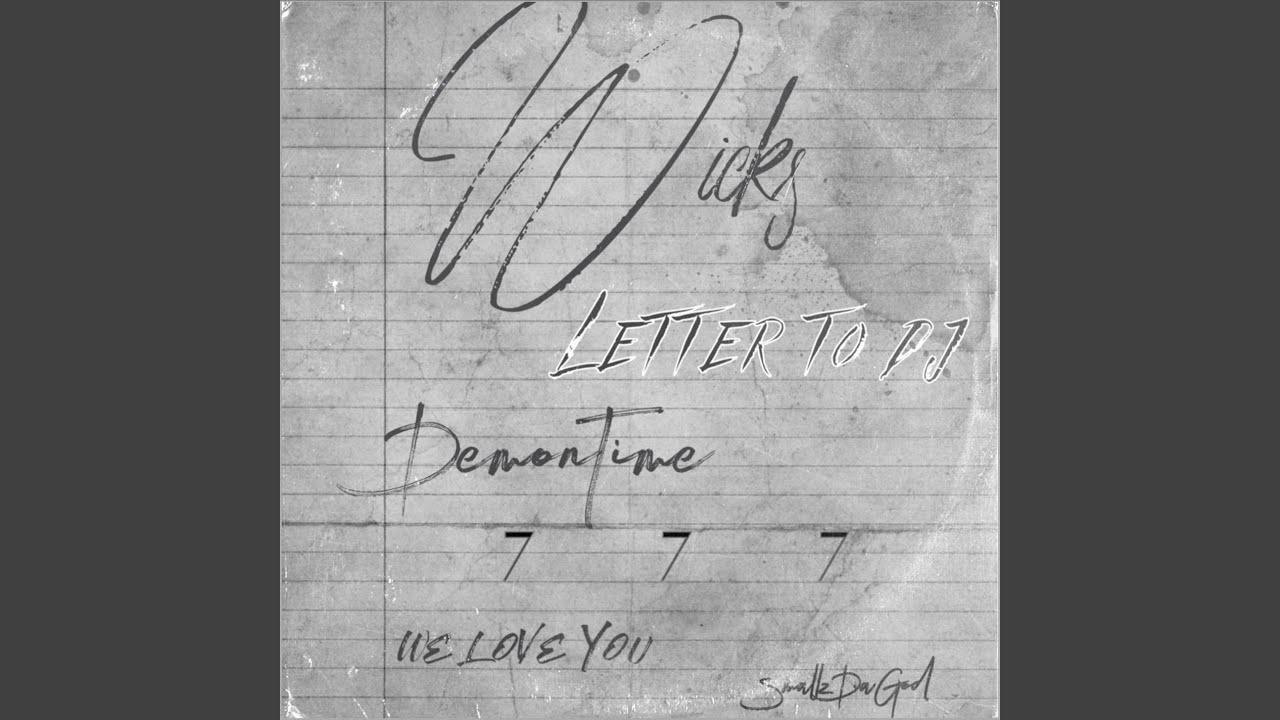 Wicks
LETTER TO DJ
DemonTime
7 7 7
WE LOVE YOU
SmallzDaGod